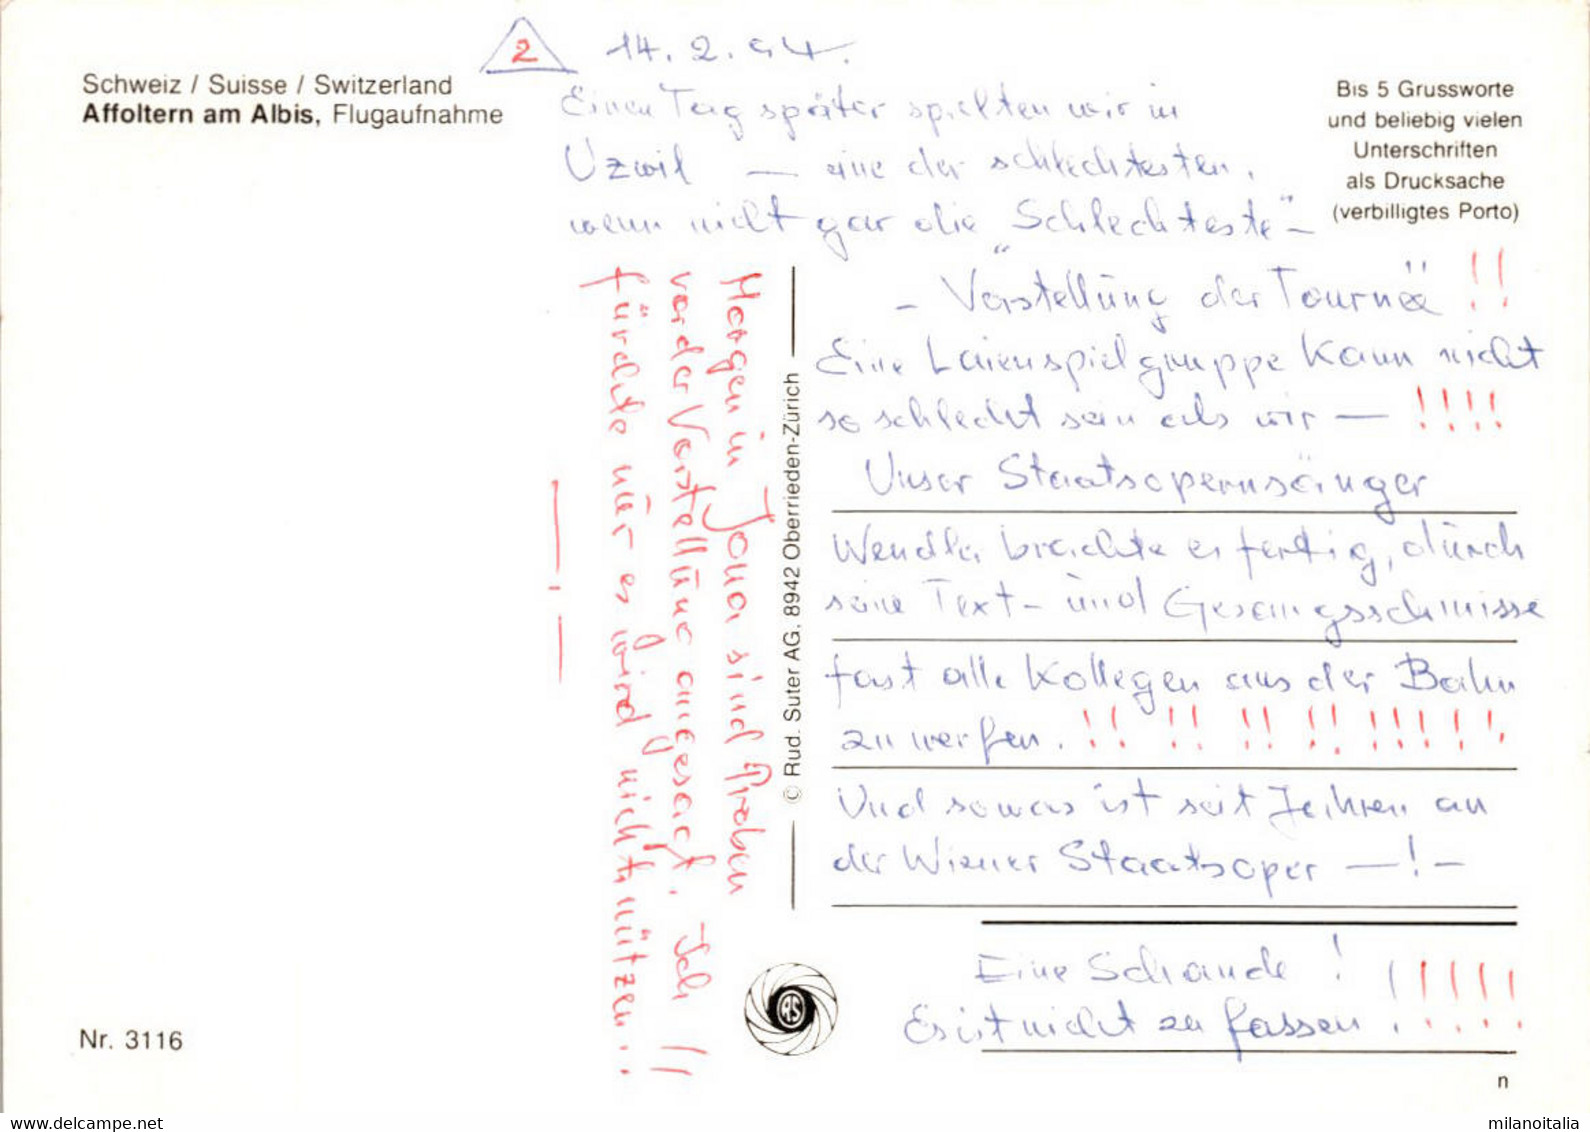 Schweiz / Suisse / Switzerland
Affoltern am Albis, Flugaufnahme
2
14. 2. 94.
Bis 5 Grussworte
und beliebig vielen
Unterschriften
als Drucksache
(verbilligtes Porto)
Einen Tag später spielten wir in
Uzwil — eine der schlechtesten,
wenn nicht gar die „Schlechteste" –
– Vorstellung der Tournee !!
Eine Laienspielgruppe kann nicht
so schlecht sein als wir — !!!!
Unser Staatsopernsänger
Wendler brachte es fertig, durch
seine Text- und Gesangsschmisse
fast alle Kollegen aus der Bahn
zu werfen. !! !! !! !! !!!!!!
Und sowas ist seit Jahren an
der Wiener Staatsoper —!–
Eine Schande ! !!!!!
Es ist nicht zu fassen !!!!!
Morgen in Jona sind Proben
vor der Vorstellung angesagt. Ich
fürchte nur es wird nicht nützen!!
— ! —
© Rud. Suter AG, 8942 Oberrieden-Zürich
RS
Nr. 3116
n
milanoitalia